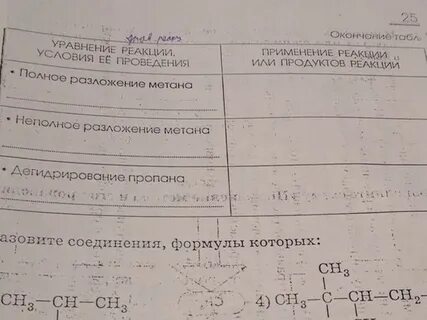 25
Окончание табл.
УРАВНЕНИЕ РЕАКЦИИ,
УСЛОВИЯ ЕЁ ПРОВЕДЕНИЯ
ПРИМЕНЕНИЕ РЕАКЦИИ
ИЛИ ПРОДУКТОВ РЕАКЦИИ
• Полное разложение метана
• Неполное разложение метана
• Дегидрирование пропана
азовите соединения, формулы которых:
CH₃
CH₃—CH—CH₃
4) CH₃—C—CH—CH₂—
CH₃ CH₃